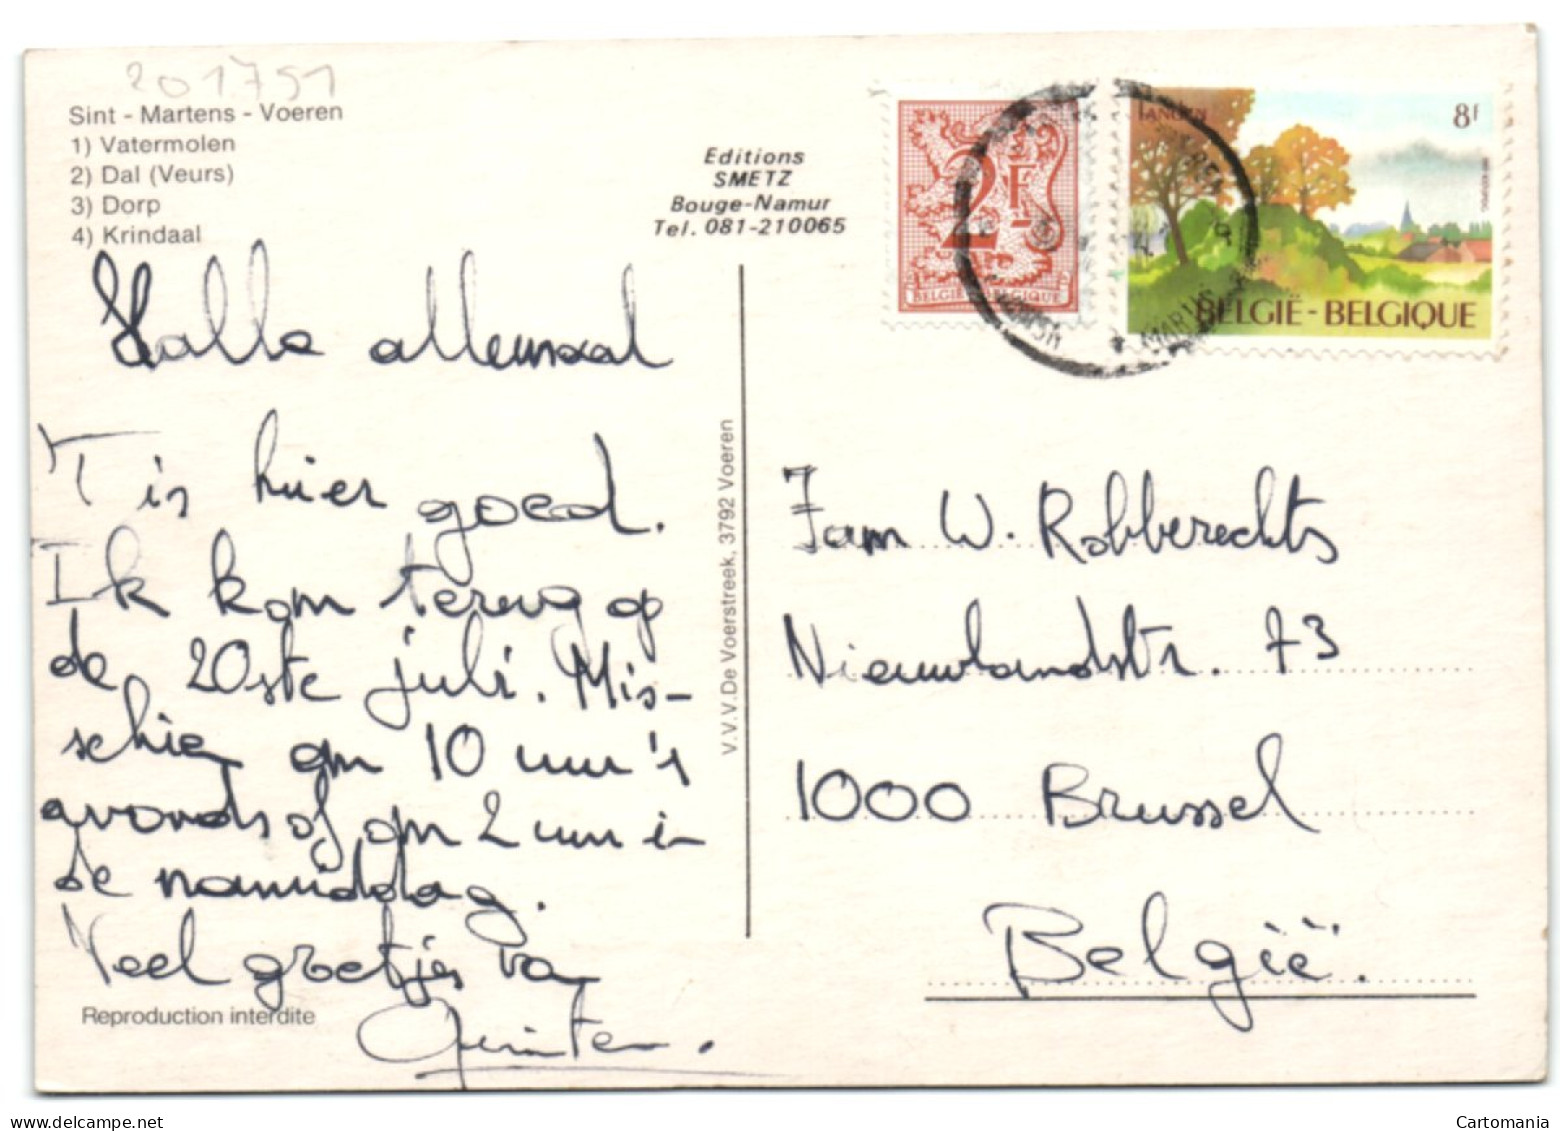 201751
Sint - Martens - Voeren
1) Vatermolen
2) Dal (Veurs)
3) Dorp
4) Krindaal
Editions
SMETZ
Bouge-Namur
Tel. 081-210065
2F
BELGIË BELGIQUE
8f
BELGIË - BELGIQUE
Hallo allemaal
T is hier goed.
Ik kom terug op
de 20ste juli. Mis-
schien om 10 uur 's
avonds of om 2 uur in
de namiddag.
Veel groetjes van
Quinten.
Reproduction interdite
V.V.V. De Voerstreek, 3792 Voeren
Fam W. Robberechts
Nieuwlandstr. 73
1000 Brussel
België.
Cartomania
www.delcampe.net